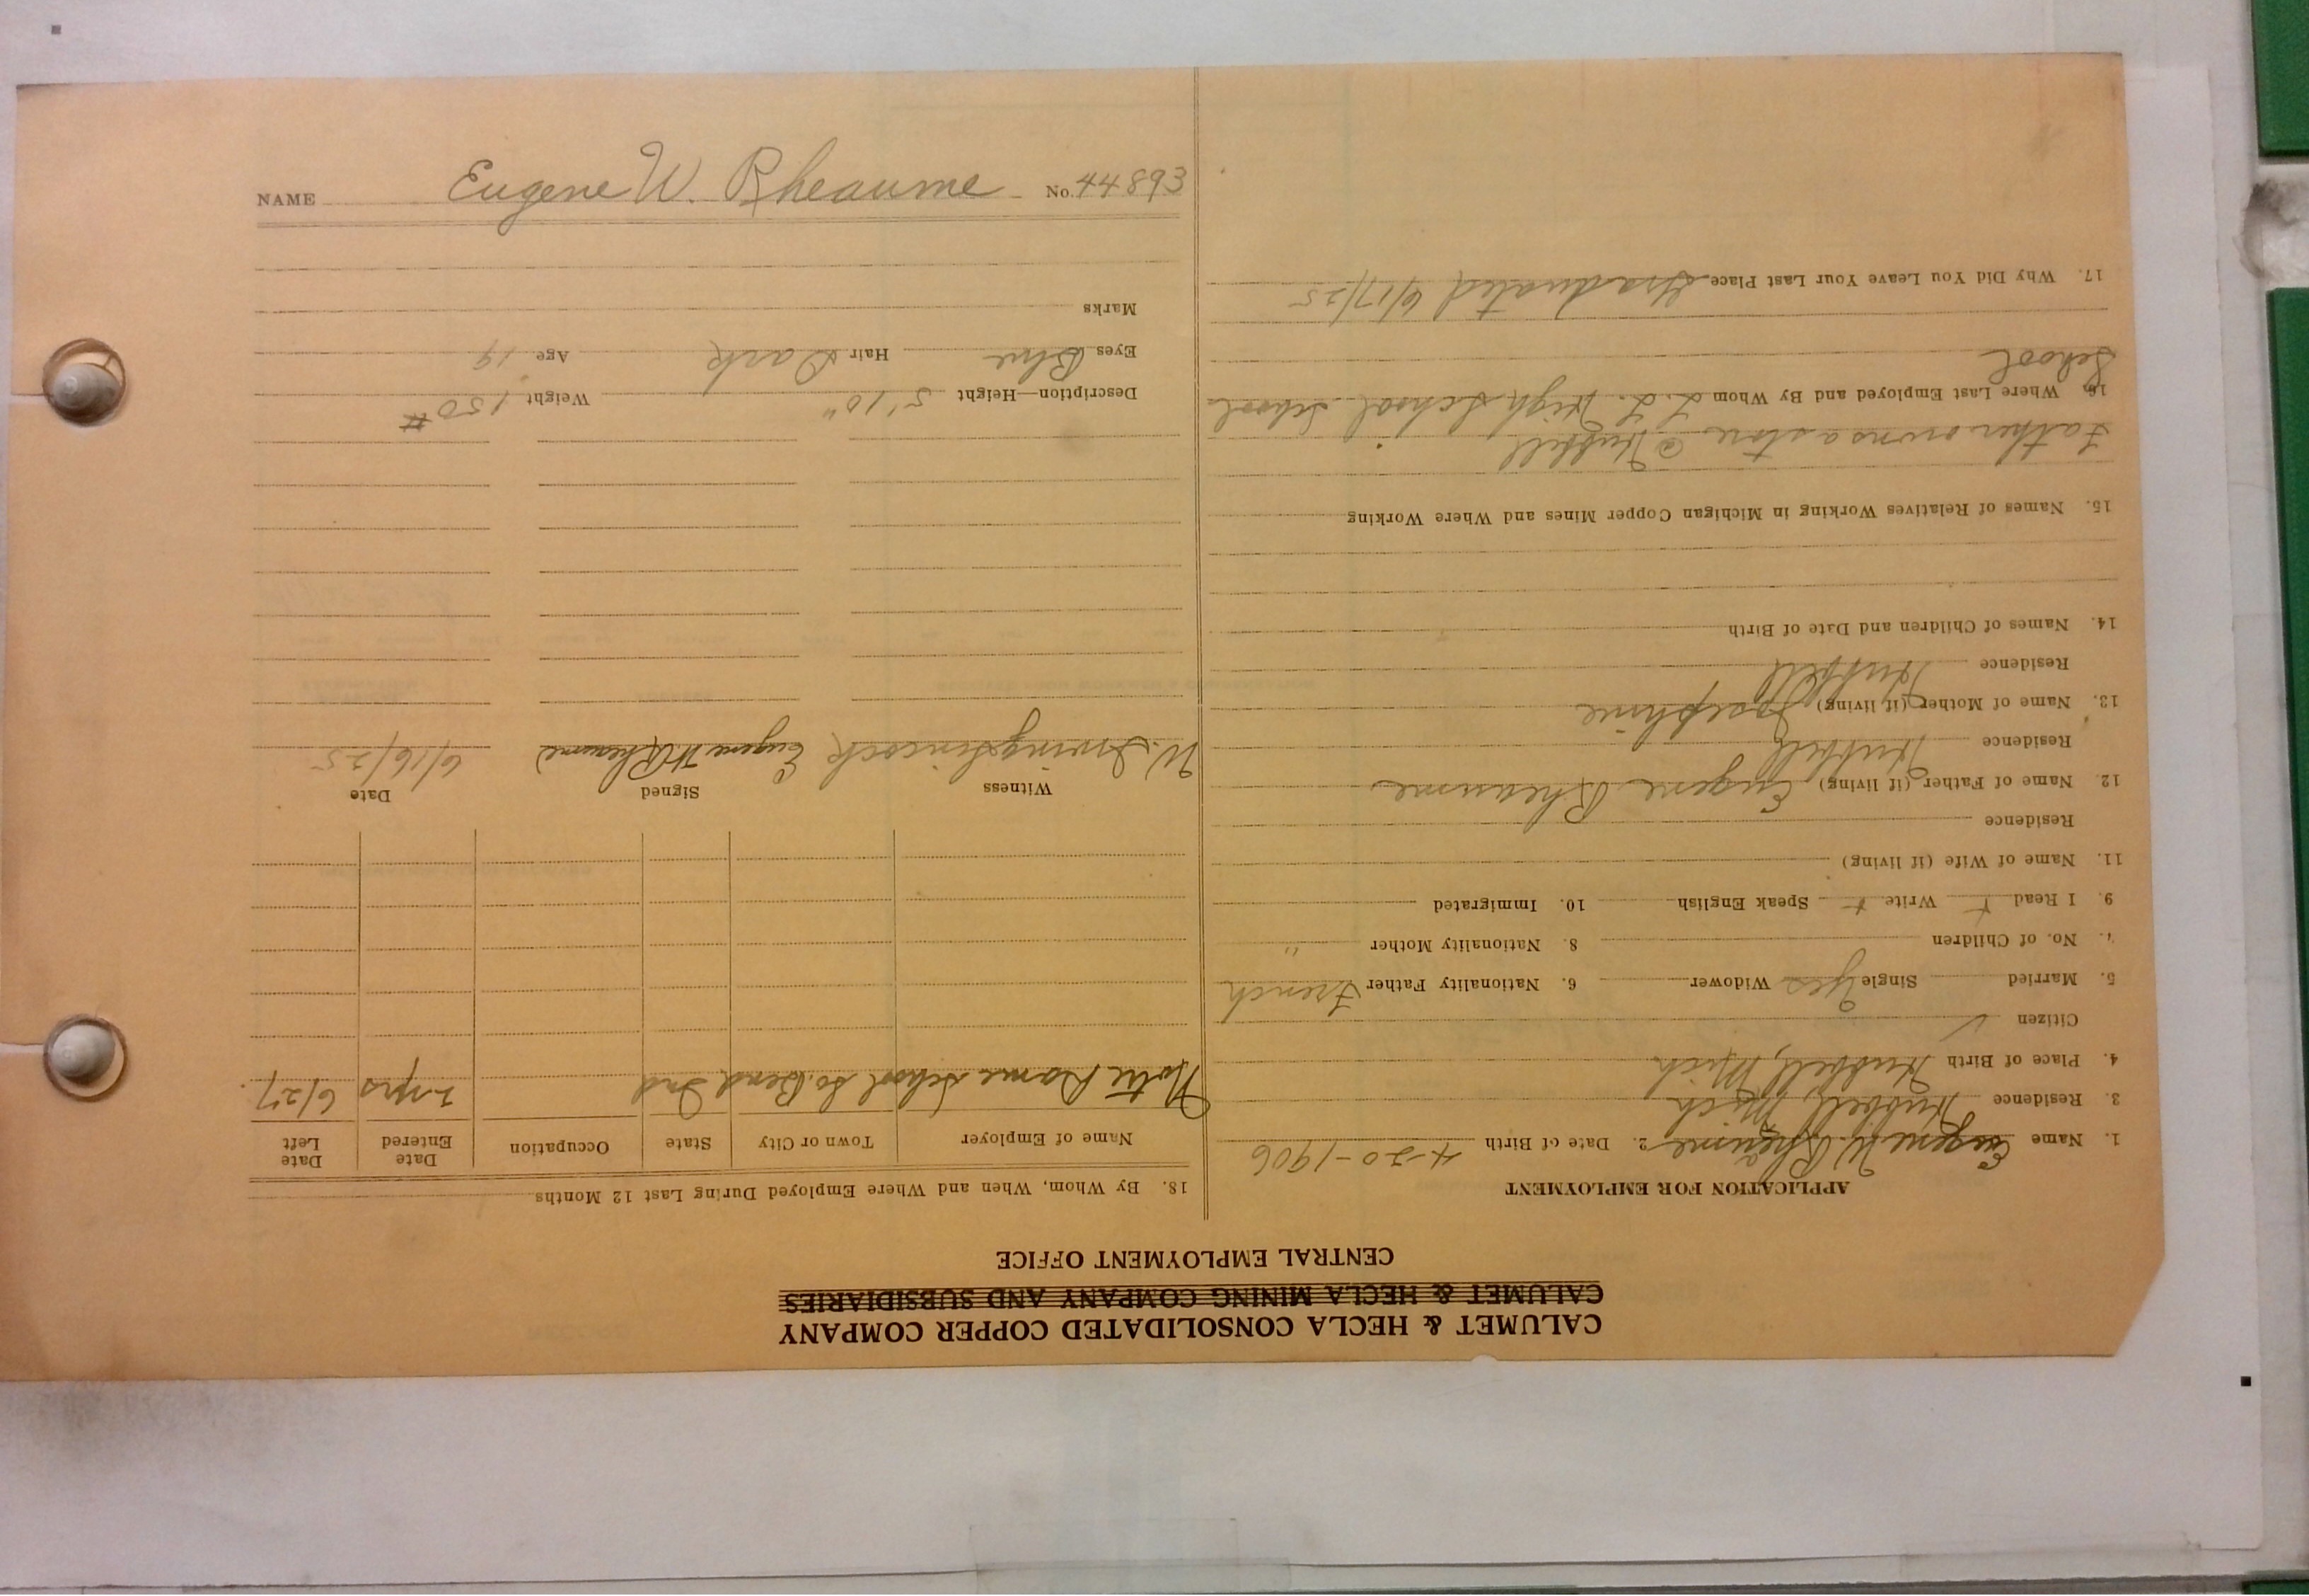 CALUMET & HECLA CONSOLIDATED COPPER COMPANY
CALUMET & HECLA MINING COMPANY AND SUBSIDIARIES
CENTRAL EMPLOYMENT OFFICE
APPLICATION FOR EMPLOYMENT
1. Name Eugene W. Rheaume 2. Date of Birth 4-20-1906
3. Residence Hubbell, Mich
4. Place of Birth Hubbell, Mich
Citizen ✓
5. Married Single Yes Widower 6. Nationality Father French
7. No. of Children 8. Nationality Mother "
9. I Read + Write + Speak English 10. Immigrated
11. Name of Wife (if living)
Residence
12. Name of Father (if living) Eugene Rheaume
Residence Hubbell
13. Name of Mother (if living) Josephine
Residence Hubbell
14. Names of Children and Date of Birth
15. Names of Relatives Working in Michigan Copper Mines and Where Working
Father owns a store @ Hubbell
16. Where Last Employed and By Whom L. L. High School School
School
17. Why Did You Leave Your Last Place Graduated 6/17/25
18. By Whom, When and Where Employed During Last 12 Months
Name of Employer Town or City State Occupation Date Entered Date Left
Notre Dame School So. Bend Ind 2 yrs 6/27
Witness Signed Date
W. Irving Eugene W Rheaume 6/16/25
Description—Height 5' 10" Weight 150 #
Eyes Blue Hair Dark Age 19
Marks
NAME Eugene W. Rheaume No. 44893